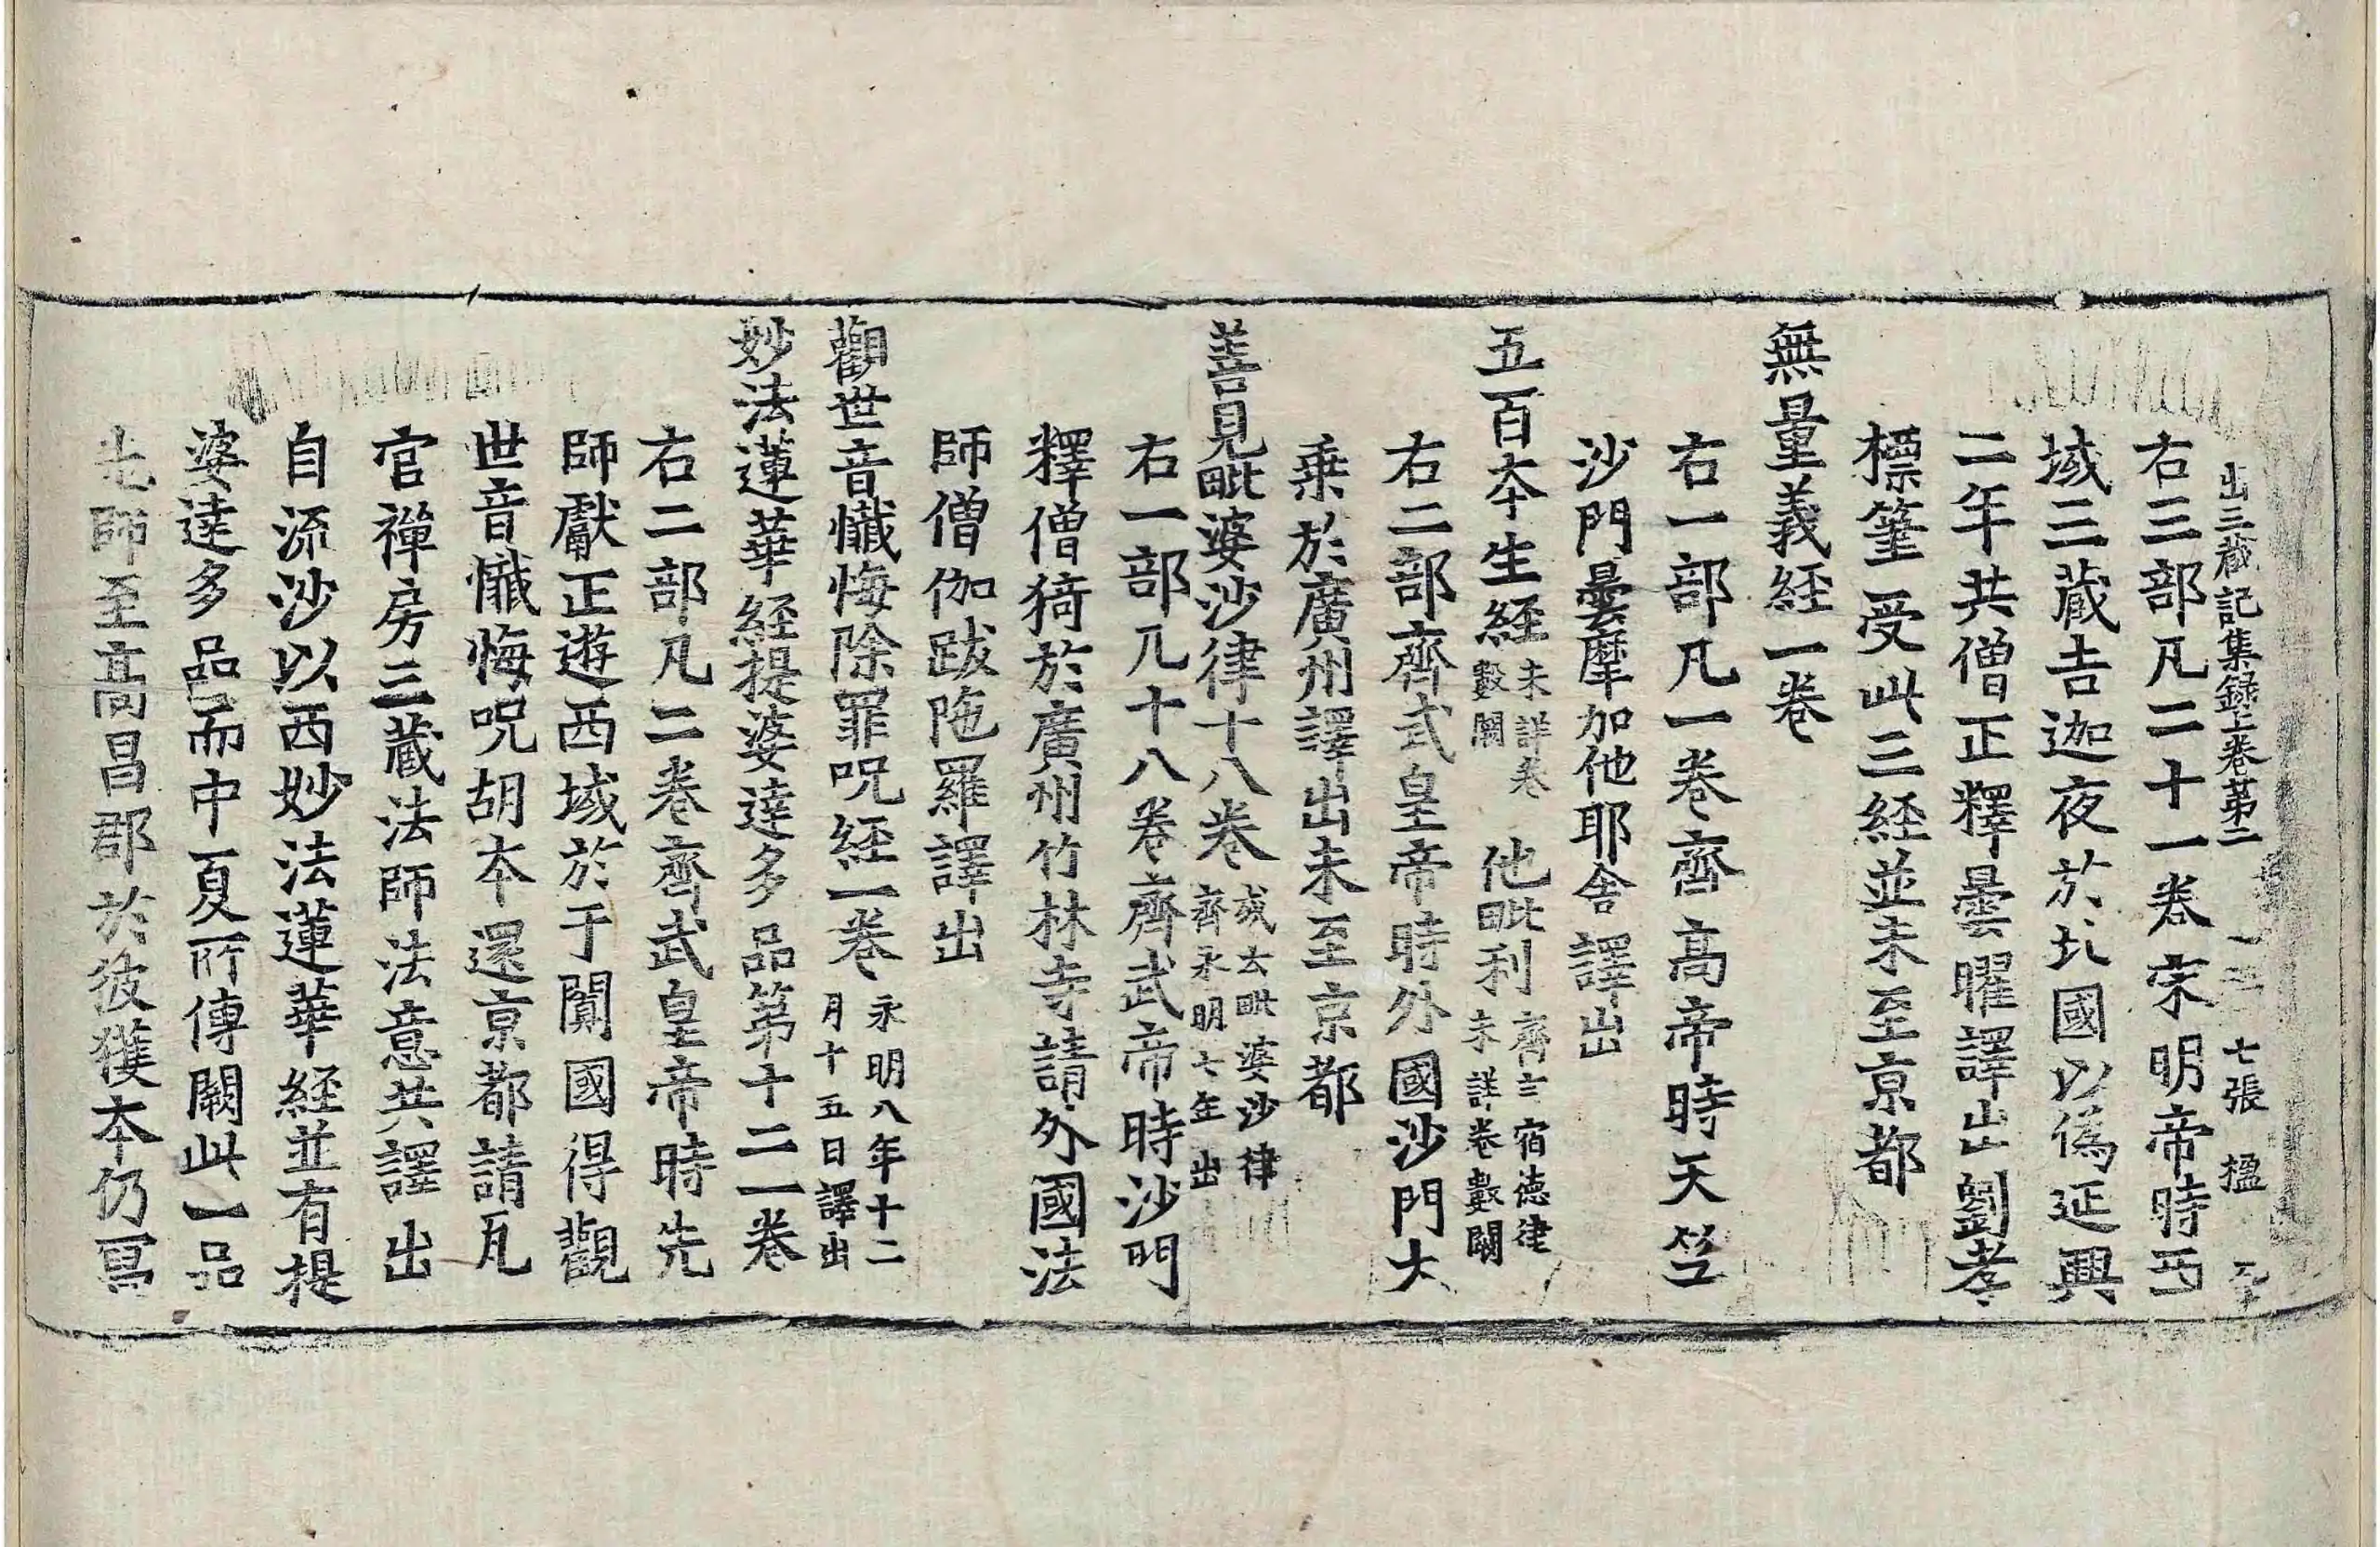 出三藏記集録上卷第二 七張 揾
右三部凡二十一卷宋明帝時西
域三藏吉迦夜於北國以偽延興
二年共僧正釋曇曜譯出劉孝
標筆受此三経並未至京都
無量義経一卷
右一部凡一卷齊高帝時天竺
沙門曇摩加他耶舍譯出
五百夲生経未詳卷數闕 他毗利齊言宿德律未詳卷數闕
右二部齊武皇帝時外國沙門大
乘於廣州譯出未至京都
善見毗婆沙律十八卷或云毗婆沙律齊永明七年出
右一部凡十八卷齊武帝時沙門
釋僧猗於廣州竹林寺請外國法
師僧伽跋陁羅譯出
觀世音懺悔除罪呪経一卷永明八年十二月十五日譯出
妙法蓮華経提婆達多品第十二一卷
右二部凡二卷齊武皇帝時先
師獻正遊西域於于闐國得觀
世音懺悔呪胡夲還京都請瓦
官禪房三藏法師法意共譯出
自流沙以西妙法蓮華経並有提
婆達多品而中夏所傳闕此一品
先師至高昌郡於彼獲夲仍冩